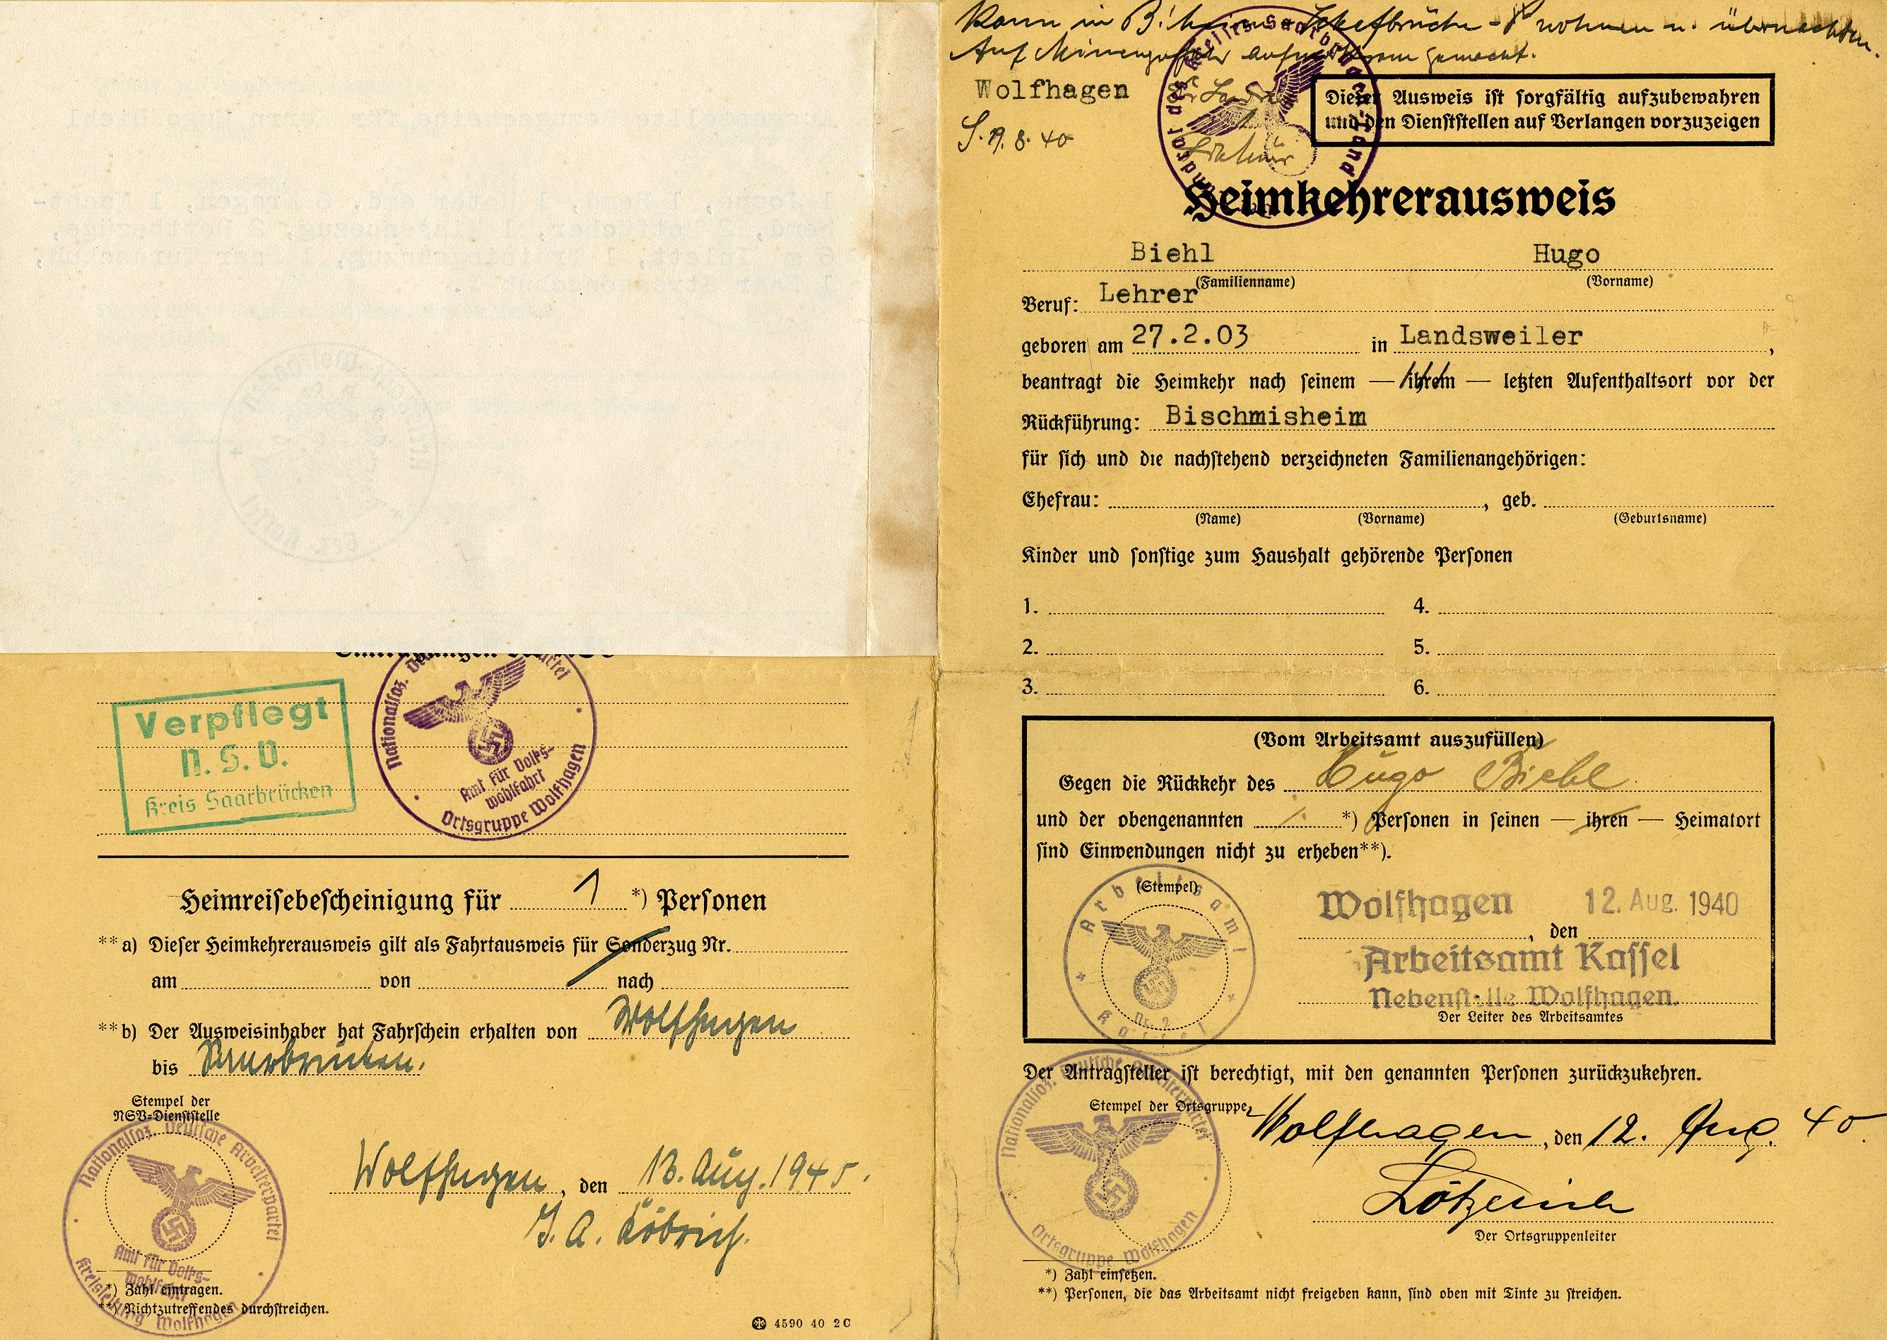 Kann in B'heim wohnen u. übernachten.
Auf Minengefahr aufmerksam gemacht.
Wolfhagen
Dieser Ausweis ist sorgfältig aufzubewahren
und den Dienststellen auf Verlangen vorzuzeigen
Heimkehrerausweis
Biehl Hugo
(Familienname) (Vorname)
Beruf: Lehrer
geboren am 27.2.03 in Landsweiler,
beantragt die Heimkehr nach seinem — ihrem — letzten Aufenthaltsort vor der
Rückführung: Bischmisheim
für sich und die nachstehend verzeichneten Familienangehörigen:
Ehefrau: , geb.
(Name) (Vorname) (Geburtsname)
Kinder und sonstige zum Haushalt gehörende Personen
1. 4.
2. 5.
3. 6.
(Vom Arbeitsamt auszufüllen)
Gegen die Rückkehr des Hugo Biehl
und der obengenannten *) Personen in seinen — ihren — Heimatort
sind Einwendungen nicht zu erheben**).
(Stempel)
Arbeitsamt Kassel
Nr. 2
Wolfhagen, den 12. Aug. 1940
Arbeitsamt Kassel
Nebenstelle Wolfhagen.
Der Leiter des Arbeitsamtes
Der Antragsteller ist berechtigt, mit den genannten Personen zurückzukehren.
Stempel der Ortsgruppe
Wolfhagen, den 12. Aug. 40.
Der Ortsgruppenleiter
Nationalsoz. Deutsche Arbeiterpartei
Ortsgruppe Wolfhagen
*) Zahl einsetzen.
**) Personen, die das Arbeitsamt nicht freigeben kann, sind oben mit Tinte zu streichen.
Verpflegt
N.S.V.
Kreis Saarbrücken
Amt für Volks-
wohlfahrt
Ortsgruppe Wolfhagen
Heimreisebescheinigung für 1 *) Personen
** a) Dieser Heimkehrerausweis gilt als Fahrtausweis für Sonderzug Nr.
am von nach
** b) Der Ausweisinhaber hat Fahrschein erhalten von Wolfhagen
bis Saarbrücken.
Stempel der
NSV-Dienststelle
Nationalsoz. Deutsche Arbeiterpartei
Amt für Volks-
wohlfahrt
Kreisleitung Wolfhagen
Wolfhagen, den 13. Aug. 1940.
I. A.
*) Zahl eintragen.
**) Nichtzutreffendes durchstreichen.
4590 40 2C